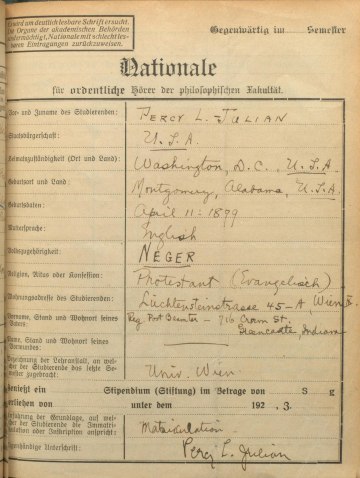 Es wird um deutlich lesbare Schrift ersucht.
Die Organe der akademischen Behörden
sind ermächtigt, Nationale mit schlecht les-
baren Eintragungen zurückzuweisen.
Gegenwärtig im Semester
Nationale
für ordentliche Hörer der philosophischen Fakultät.
Vor- und Zuname des Studierenden: PERCY L. JULIAN
Staatsbürgerschaft: U.S.A.
Heimatzuständigkeit (Ort und Land): Washington, D.C., U.S.A.
Geburtsort und Land: Montgomery, Alabama, U.S.A.
Geburtsdatum: April 11: 1899
Muttersprache: English
Volkszugehörigkeit: NEGER
Religion, Ritus oder Konfession: Protestant (Evangelisch)
Wohnungsadresse des Studierenden: Liichtensteinstrasse 45-A, Wien
Vorname, Stand und Wohnort seines Vaters: 
Greencastle, Indiana
Name, Stand und Wohnort seines
Vormundes:
Bezeichnung der Lehranstalt, an wel-
cher der Studierende das letzte Se-
mester zugebracht: Univ. Wien
Genießt ein Stipendium (Stiftung) im Betrage von S g
verliehen von unter dem 192 , 3.
Anführung der Grundlage, auf wel-
cher der Studierende die Immatri-
kulation oder Inskription anspricht: Matriculation
Eigenhändige Unterschrift: Percy L. Julian